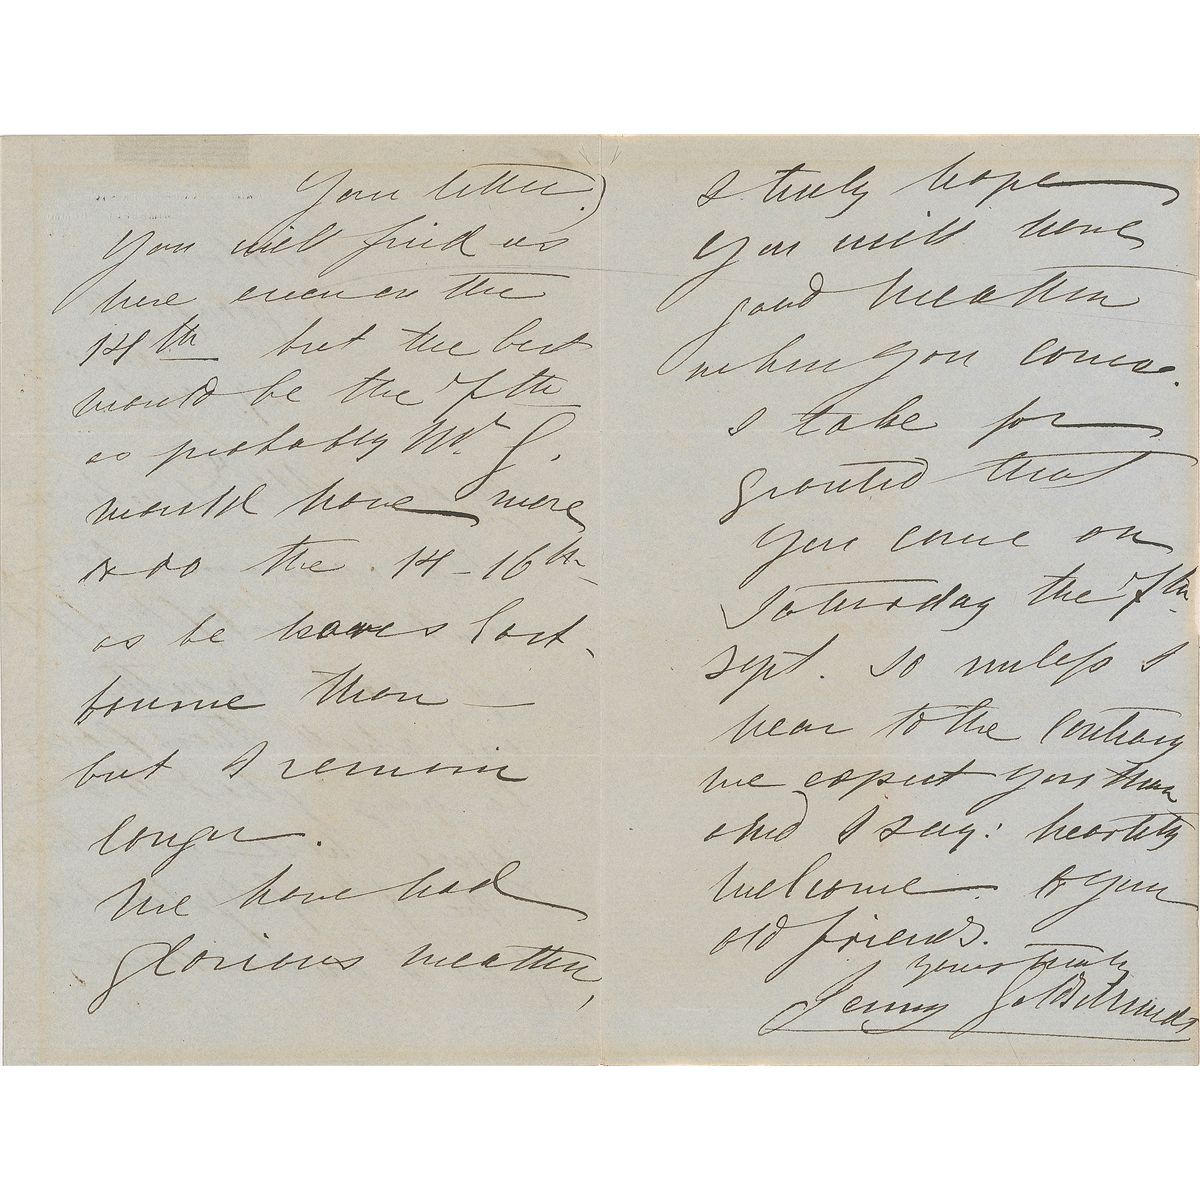 your letter.)
You will find us
here even on the
14th but the best
would be the 7th
as probably Mr G.
would have more
to do the 14-16th
as he leaves East-
bourne then –
but I remain
longer.
We have had
glorious weather,
I truly hope
you will have
good weather
when you come.
I take for
granted that
you come on
Saturday the 7th
Sept. So unless I
hear to the contrary
we expect you then
and I say: heartily
welcome to your
old friends.
yours truly
Jenny Goldschmidt